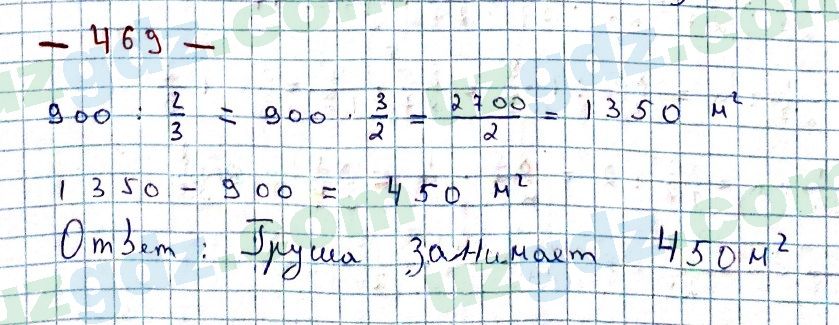 — 469 —
900 : 2/3 = 900 · 3/2 = 2700/2 = 1350 м²
1350 - 900 = 450 м²
Ответ: Груша занимает 450 м²
uzgdz.com